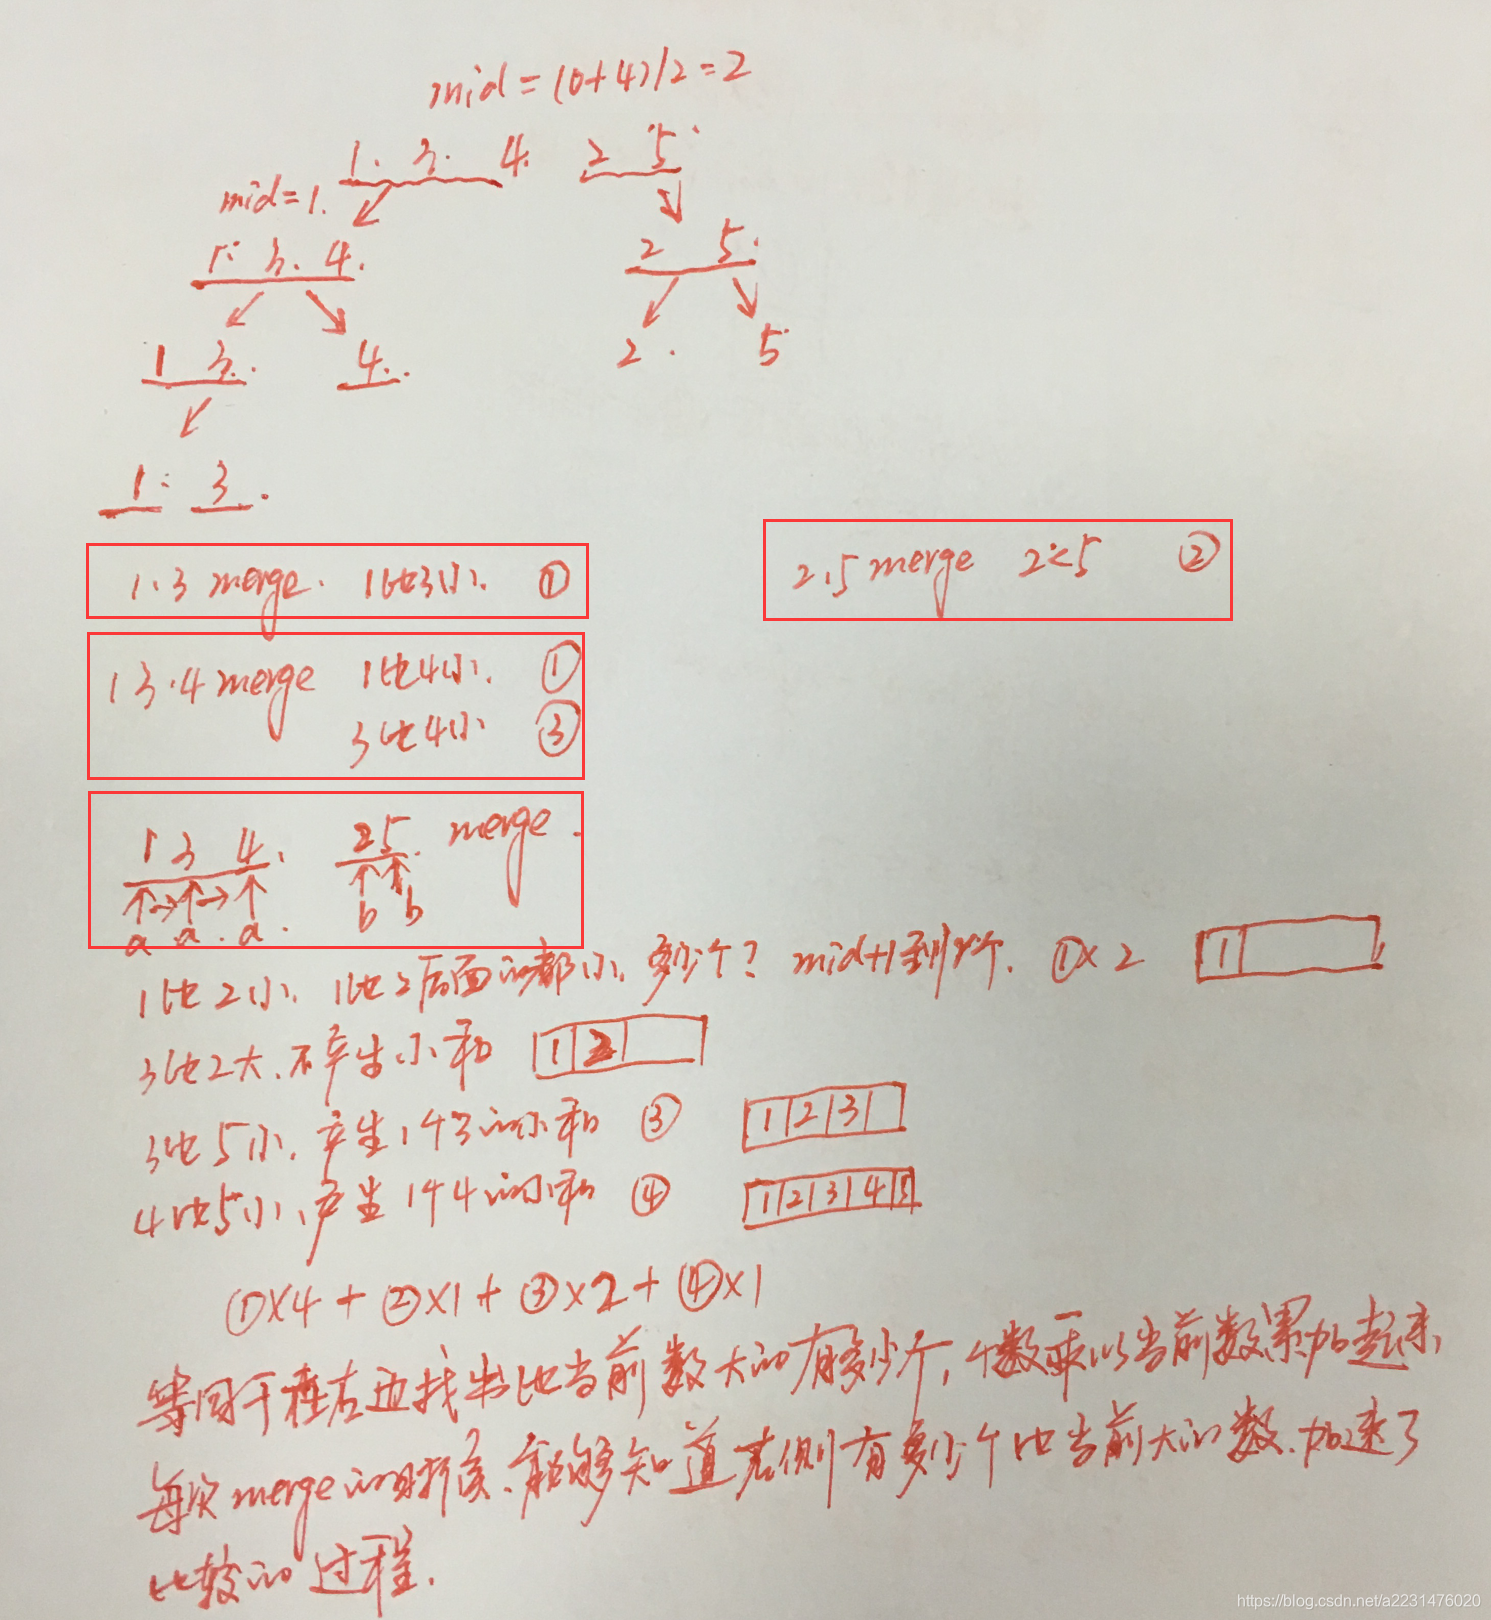 mid = (0+4)/2 = 2
1. 3. 4. 2 5.
mid=1.
1. 3. 4. 2 5.
1 3. 4. 2. 5.
1. 3.
1.3 merge. 1比3小. ①
2.5 merge 2<5 ②
1 3.4 merge 1比4小. ①
3比4小 ③
1 3 4. 2 5. merge.
a a. a. b b
1比2小. 1比2后面的都小. 多少个? mid+1到r个. ①×2 1
3比2大.不产生小和 1 2
3比5小.产生1个3的小和 ③ 1 2 3
4比5小、产生1个4的小和 ④ 1 2 3 4 5
①×4 + ②×1 + ③×2 + ④×1
等同于在右边找出比当前数大的有多少个, 个数乘以当前数累加起来
每次merge的时候、能够知道右侧有多少个比当前大的数.加速了
比较的过程.
https://blog.csdn.net/a2231476020